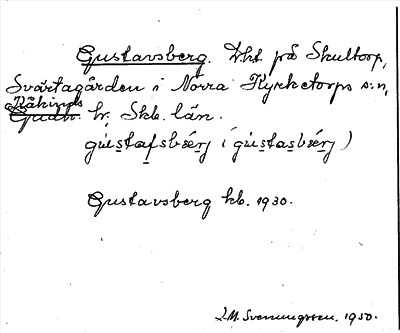 Gustavsberg. Trkt på Skultorp,
Svärtagården i Norra Kyrketorps s:n,
Kåkinds
Gudh. hr. Skb. län.
gústafsbærj (gústasbærj)
Gustavsberg kb. 1930.
I.M. Svenungsson. 1950.